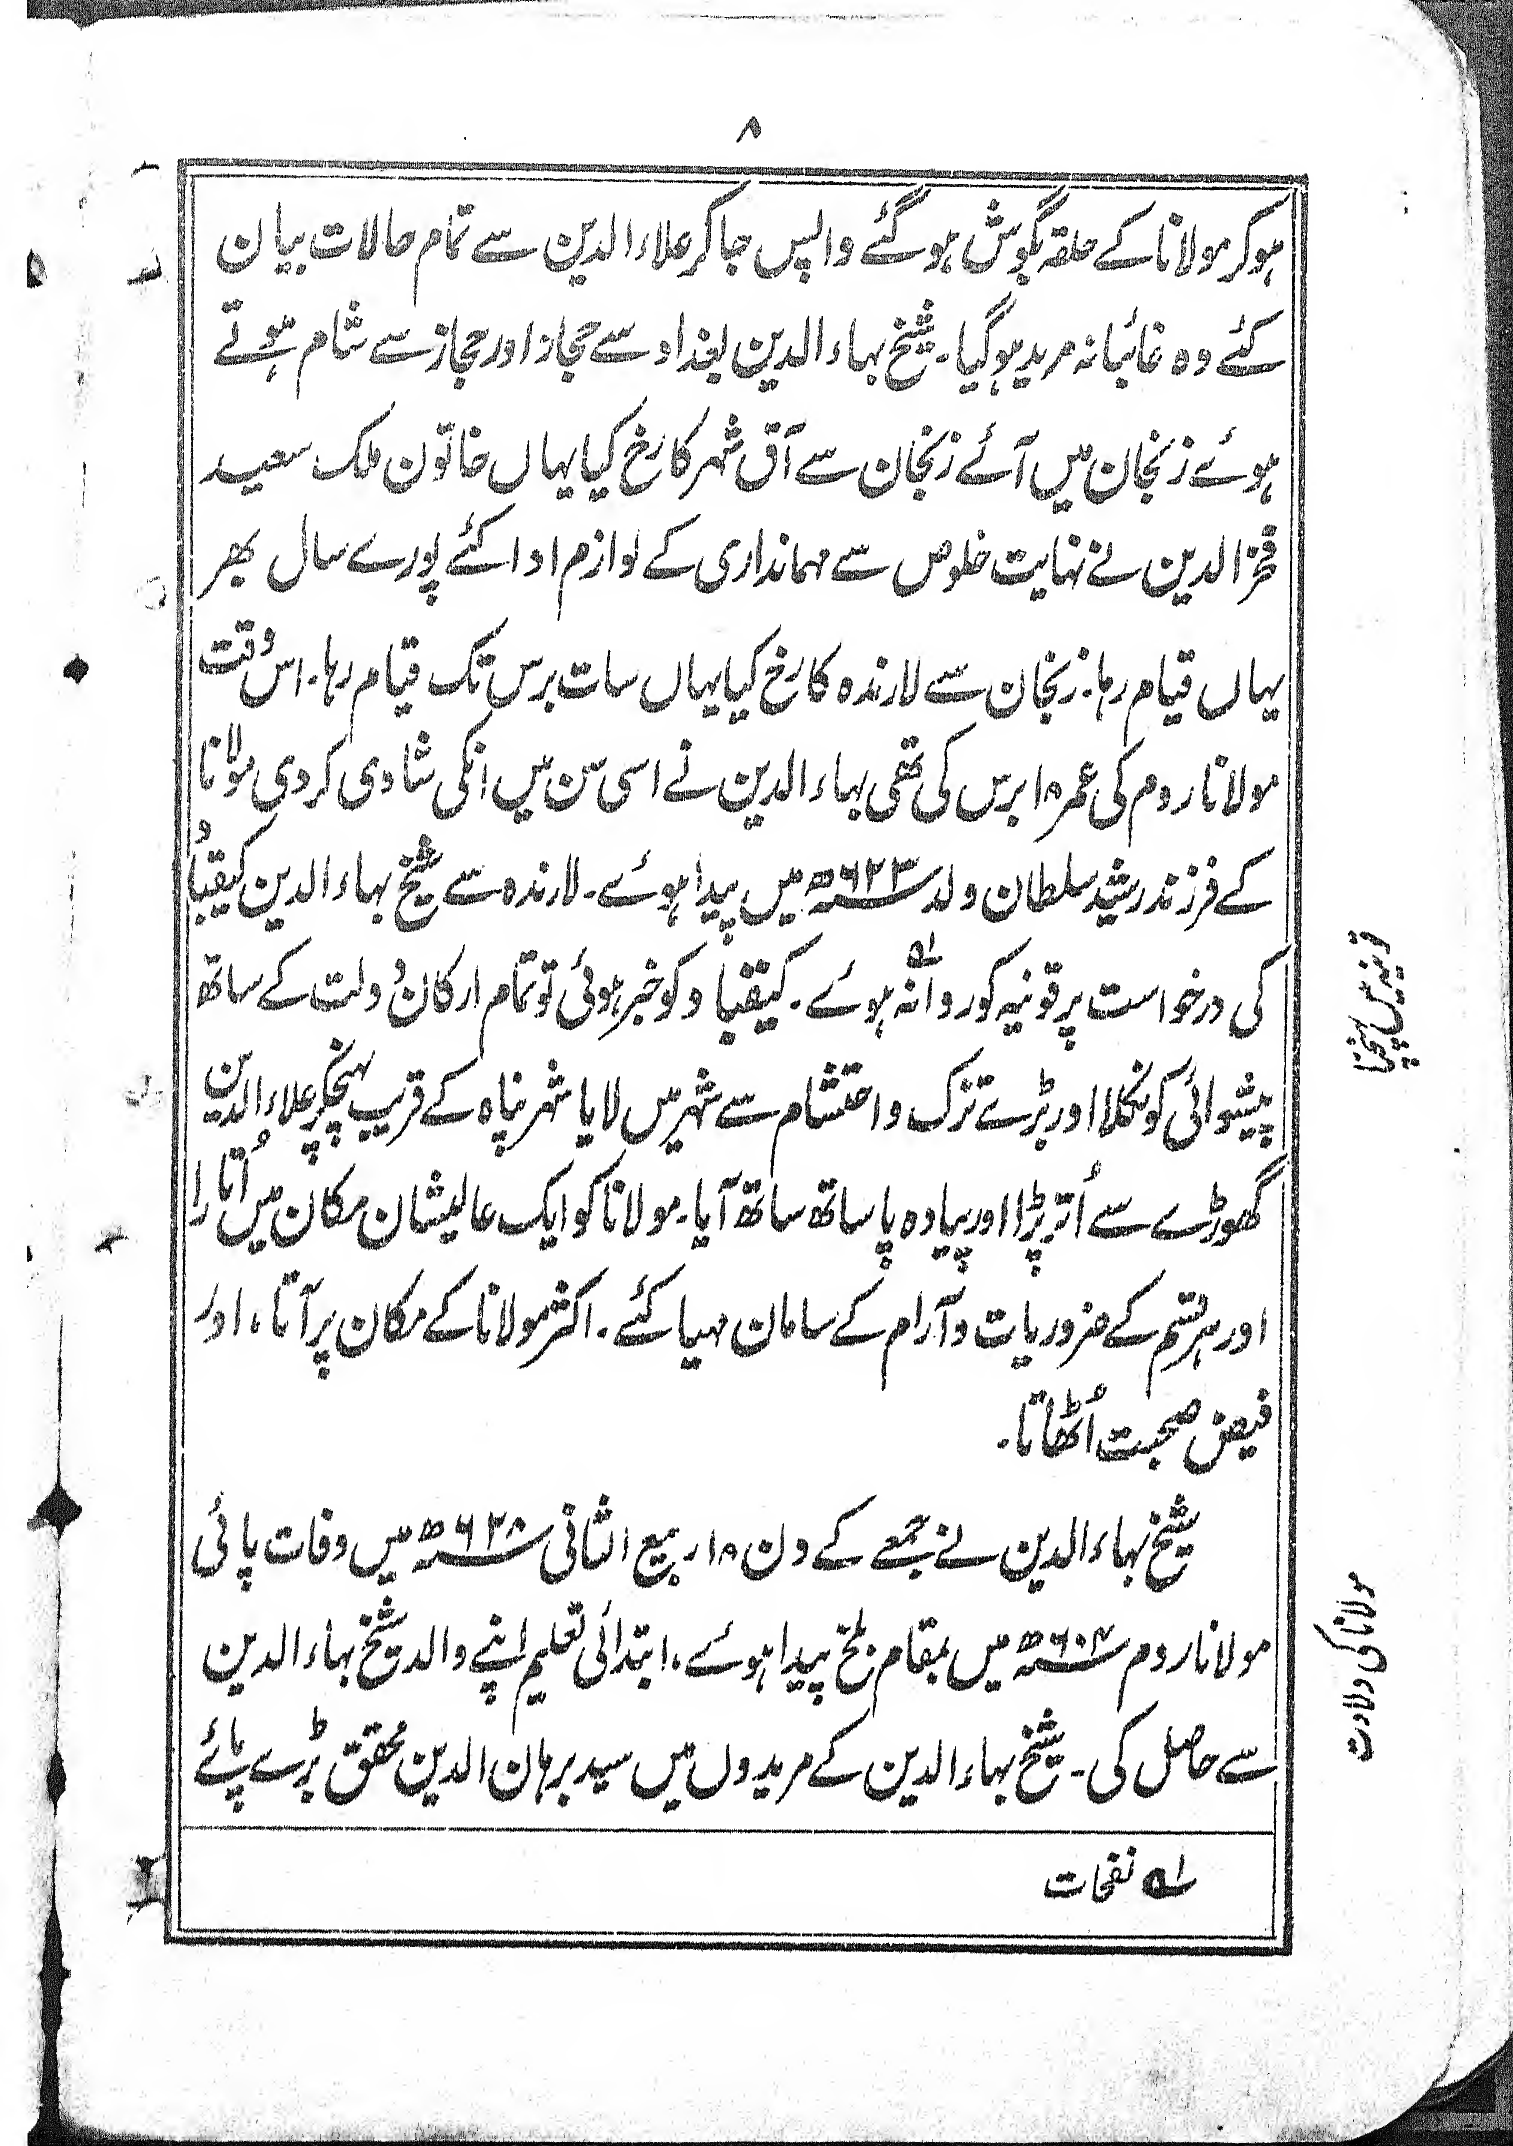 ۸
ہوکر مولانا کے حلقہ بگوش ہوگئے واپس جاکر علاء الدین سے تمام حالات بیان
کئے وہ غائبانہ مرید ہوگیا۔ شیخ بہاء الدین بغداد سے حجاز اور حجاز سے شام ہوتے
ہوئے زنجان میں آئے زنجان سے آق شہر کا رخ کیا یہاں خاتون ملک سعید
فخر الدین نے نہایت خلوص سے مہمانداری کے لوازم ادا کئے پورے سال بھر
یہاں قیام رہا۔ زنجان سے لارندہ کا رخ کیا یہاں سات برس تک قیام رہا۔ اس وقت
مولانا روم کی عمر ۱۸ برس کی تھی بہاء الدین نے اسی سن میں انکی شادی کردی مولانا
کے فرزند رشید سلطان ولد ۶۲۳ھ میں پیدا ہوئے۔ لارندہ سے شیخ بہاء الدین کیقباد
کی درخواست پر قونیہ کو روانہ ہوئے۔ ۱؎ کیقباد کو خبر ہوئی تو تمام ارکان دولت کے ساتھ
پیشوائی کو نکلا اور بڑے تزک و احتشام سے شہر میں لایا شہر پناہ کے قریب پہنچکر علاء الدین
گھوڑے سے اُتر پڑا اور پیادہ پا ساتھ ساتھ آیا۔ مولانا کو ایک عالیشان مکان میں اُتارا
اور ہر قسم کے ضروریات و آرام کے سامان مہیا کئے۔ اکثر مولانا کے مکان پر آتا، اور
فیض صحبت اُٹھاتا۔
شیخ بہاء الدین نے جمعے کے دن ۱۸ ربیع الثانی ۶۲۸ھ میں وفات پائی
مولانا روم ۶۰۴ھ میں بمقام بلخ پیدا ہوئے، ابتدائی تعلیم اپنے والد شیخ بہاء الدین
سے حاصل کی۔ شیخ بہاء الدین کے مریدوں میں سید برہان الدین محقق بڑے پائے
۱؎ نفحات
قونیہ میں پہنچنا
مولانا کی ولادت